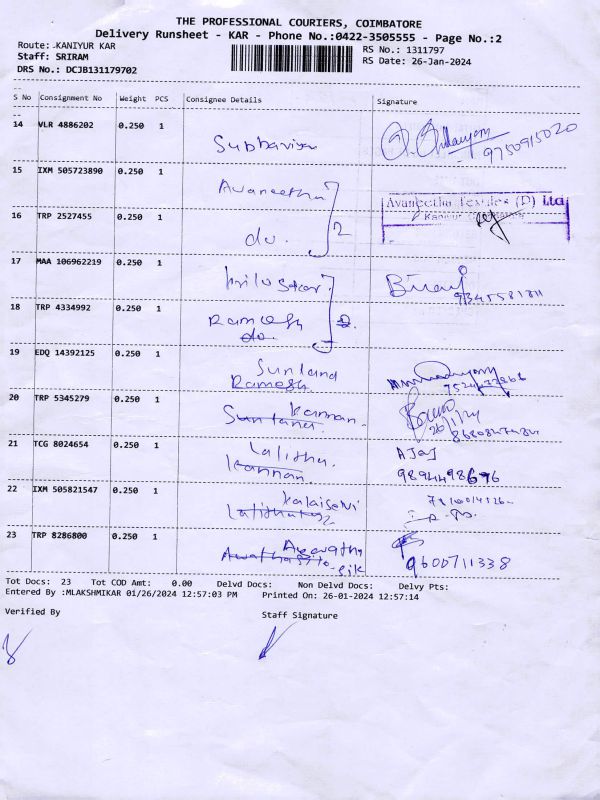 THE PROFESSIONAL COURIERS, COIMBATORE
Delivery Runsheet - KAR - Phone No.:0422-3505555 - Page No.:2
Route: KANIYUR KAR
RS No.: 1311797
Staff: SRIRAM
RS Date: 26-Jan-2024
DRS No.: DCJB131179702
S No Consignment No Weight PCS Consignee Details Signature
14 VLR 4886202 0.250 1
9750915020
15 IXM 505723890 0.250 1 Avaneetha
Avaneetha Textiles (P) Ltd
16 TRP 2527455 0.250 1 do. 2
17 MAA 106962219 0.250 1
18 TRP 4334992 0.250 1 Ramesh
do.
19 EDQ 14392125 0.250 1 Sunland
Ramesh
20 TRP 5345279 0.250 1 Kannan.
26/1/24
21 TCG 8024654 0.250 1 Lalitha. AJAJ
Kannan. 9894498696
22 IXM 505821547 0.250 1 Kalaiselvi
23 TRP 8286800 0.250 1
9600711338
Tot Docs: 23 Tot COD Amt: 0.00 Delvd Docs: Non Delvd Docs: Delvy Pts:
Entered By :MLAKSHMIKAR 01/26/2024 12:57:03 PM Printed On: 26-01-2024 12:57:14
Verified By Staff Signature